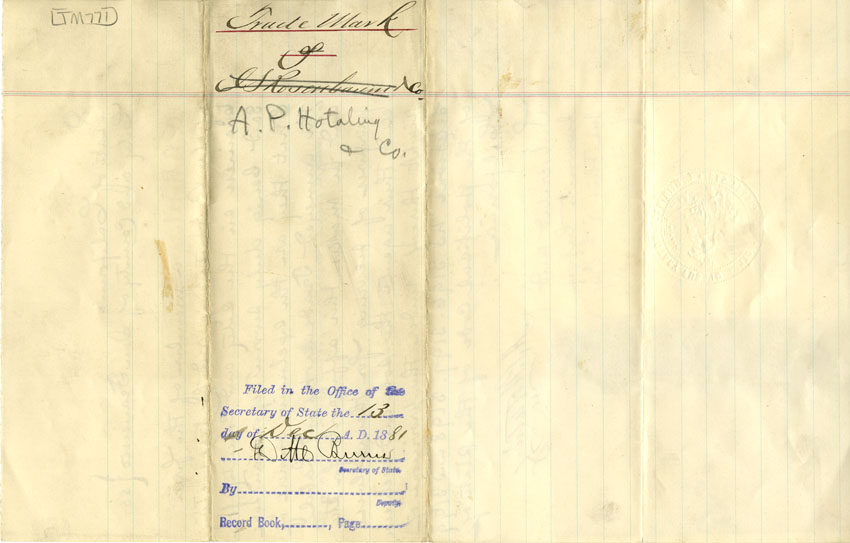 [TM771]
Trade Mark
of
I S Rosenbaum & Co.
A. P. Hotaling
& Co.
Filed in the Office of the
Secretary of State the 13
day of Dec A. D. 1881
Burns
Secretary of State.
By
Deputy.
Record Book, , Page